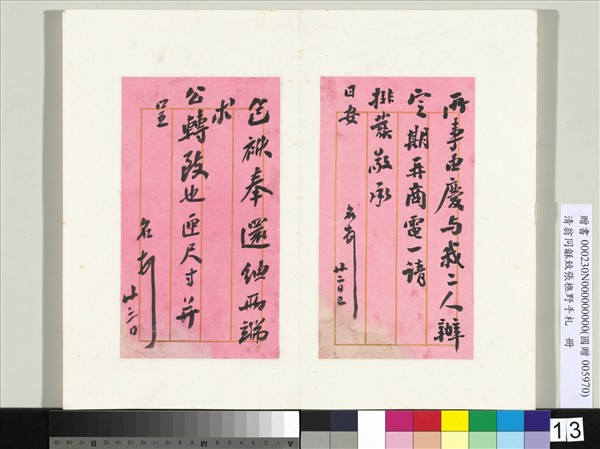 兩事由慶与我二人辦
定期再商電一請
排叢敬承
日安
名南
廿二日巳
包袱奉還緬兩端
求
公轉致也匣尺寸并
呈
名南
廿三日
贈書 000230N000000000(國贈 005970)
清翁同龢致張樵野手札 冊
13